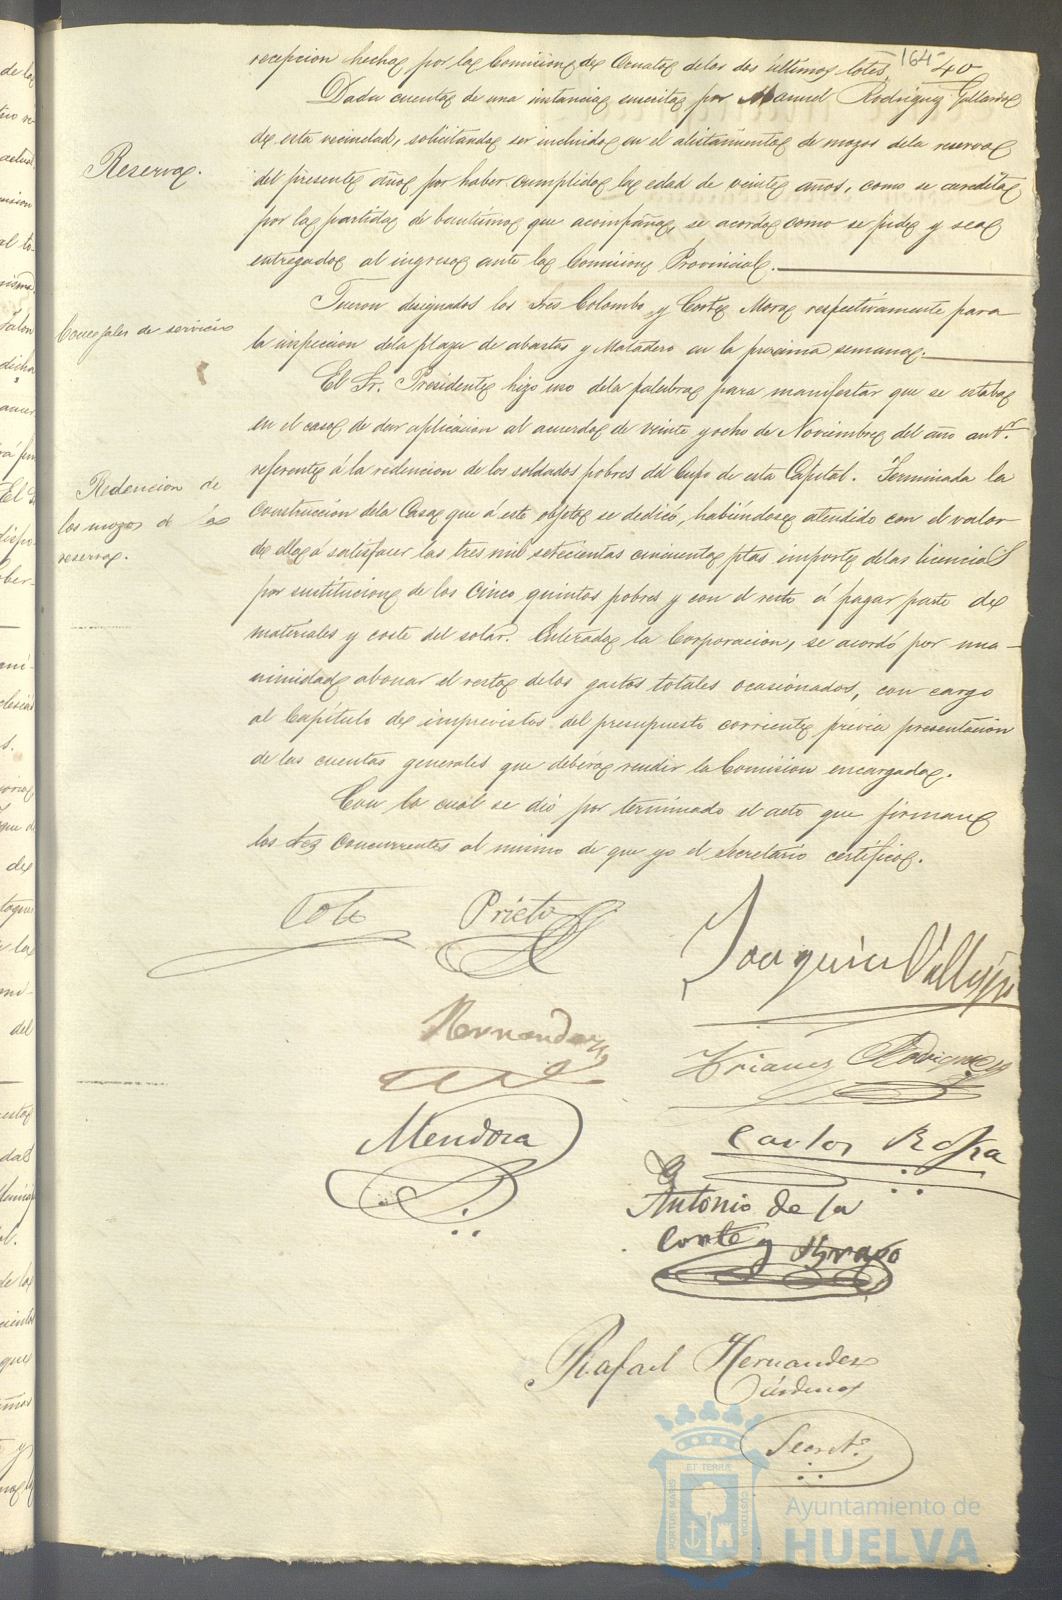 164
40
recepcion hecha por la Comision de Ornato de los dos últimos lotes.
Dada cuenta de una instancia suscrita por Manuel Rodriguez Gallardo
de esta vecindad, solicitando ser incluido en el alistamiento de mozos dela reserva
Reserva.
del presente año por haber cumplido la edad de veinte años, como se acredita
por la partida de bautismo que acompaña, se acordó como se pide y sea
entregado al ingreso ante la Comision Provincial.
Fueron designados los Sres Colombo y Corte Mora respectivamente para
Concejales de servicio
la inspeccion dela plaza de abastos y Matadero en la proxima semana.
El Sr. Presidente hizo uso dela palabra para manifestar que se estaba
en el caso de dar aplicacion al acuerdo de veinte y ocho de Noviembre del año antr.
referente á la redencion de los soldados pobres del Cupo de esta Capital. Terminada la
Redencion de
los mozos de la
reserva.
construccion dela Casa que á este objeto se dedicó, habiéndose atendido con el valor
de ella á satisfacer las tres mil setecientas cincuenta ptas importe delas licencias
por sustitucion de los cinco quintos pobres y con el resto á pagar parte de
materiales y coste del solar. Enterada la Corporacion, se acordó por una-
nimidad abonar el resto delos gastos totales ocasionados, con cargo
al Capítulo de imprevistos del presupuesto corriente prévia presentacion
de las cuentas generales que deberá rendir la Comision encargada.
Con lo cual se dió por terminado el acto que firman
los Sres concurrentes al mismo de que yo el Secretario certifico.
Prieto
Joaquin Vallejo
Hernandez
Trianes Rodriguez
Mendoza
Carlos
Antonio de la
Corte y Bravo
Rafael Hernandez
Cárdenas
Secreto.
PORTUS MARIS
ET TERRÆ
CUSTODIA
Ayuntamiento de
HUELVA